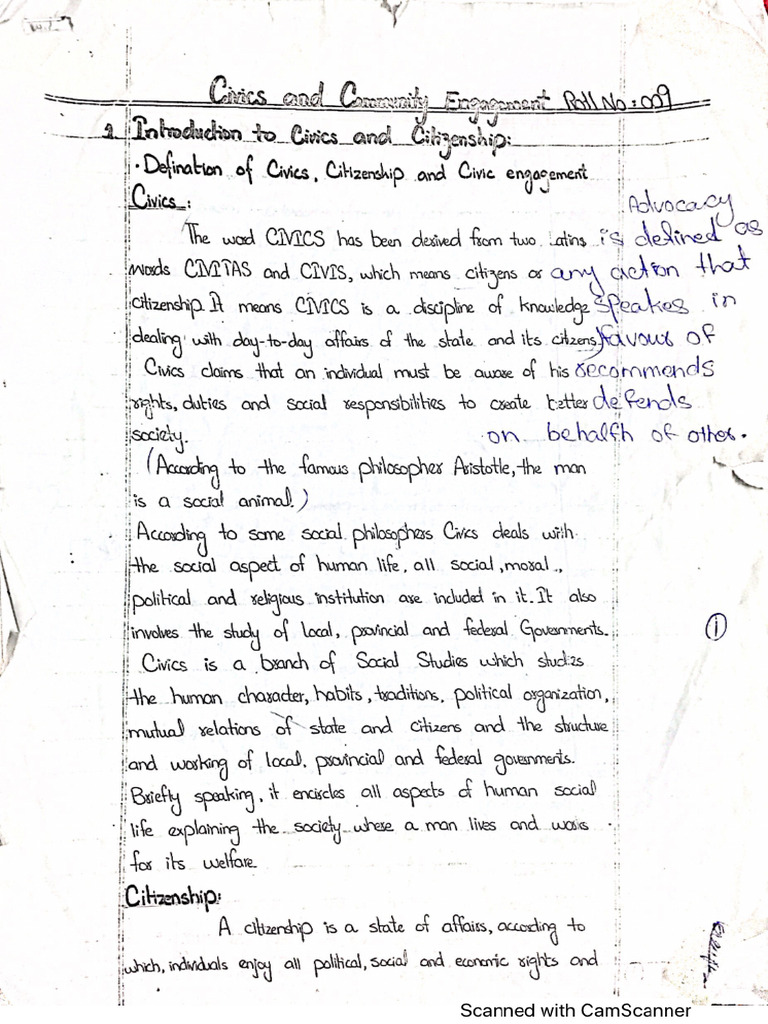 Civics and Community Engagement Roll No: 009
1 Introduction to Civics and Citizenship:
· Defination of Civics, Citizenship and Civic engagement
Civics :
The word CIVICS has been derived from two Latins
words CIVITAS and CIVIS, which means citizens or
citizenship. It means CIVICS is a discipline of knowledge
dealing with day-to-day affairs of the state and its citizens
Civics claims that an individual must be aware of his
rights, duties and social responsibilities to create better
society.
(According to the famous philosopher Aristotle, the man
is a social animal.)
According to some social philosophers Civics deals with
the social aspect of human life, all social, moral,
political and religious institution are included in it. It also
involves the study of local, provincial and federal Governments.
Civics is a branch of Social Studies which studies
the human character, habits, traditions, political organization,
mutual relations of state and citizens and the structure
and working of local, provincial and federal governments.
Briefly speaking, it encircles all aspects of human social
life explaining the society where a man lives and works
for its welfare.
Citizenship:
A citizenship is a state of affairs, according to
which, individuals enjoy all political, social and economic rights and
Advocacy
is defined as
any action that
speakes in
favour of
recommends
defends
on behalfh of other.
1
Scanned with CamScanner